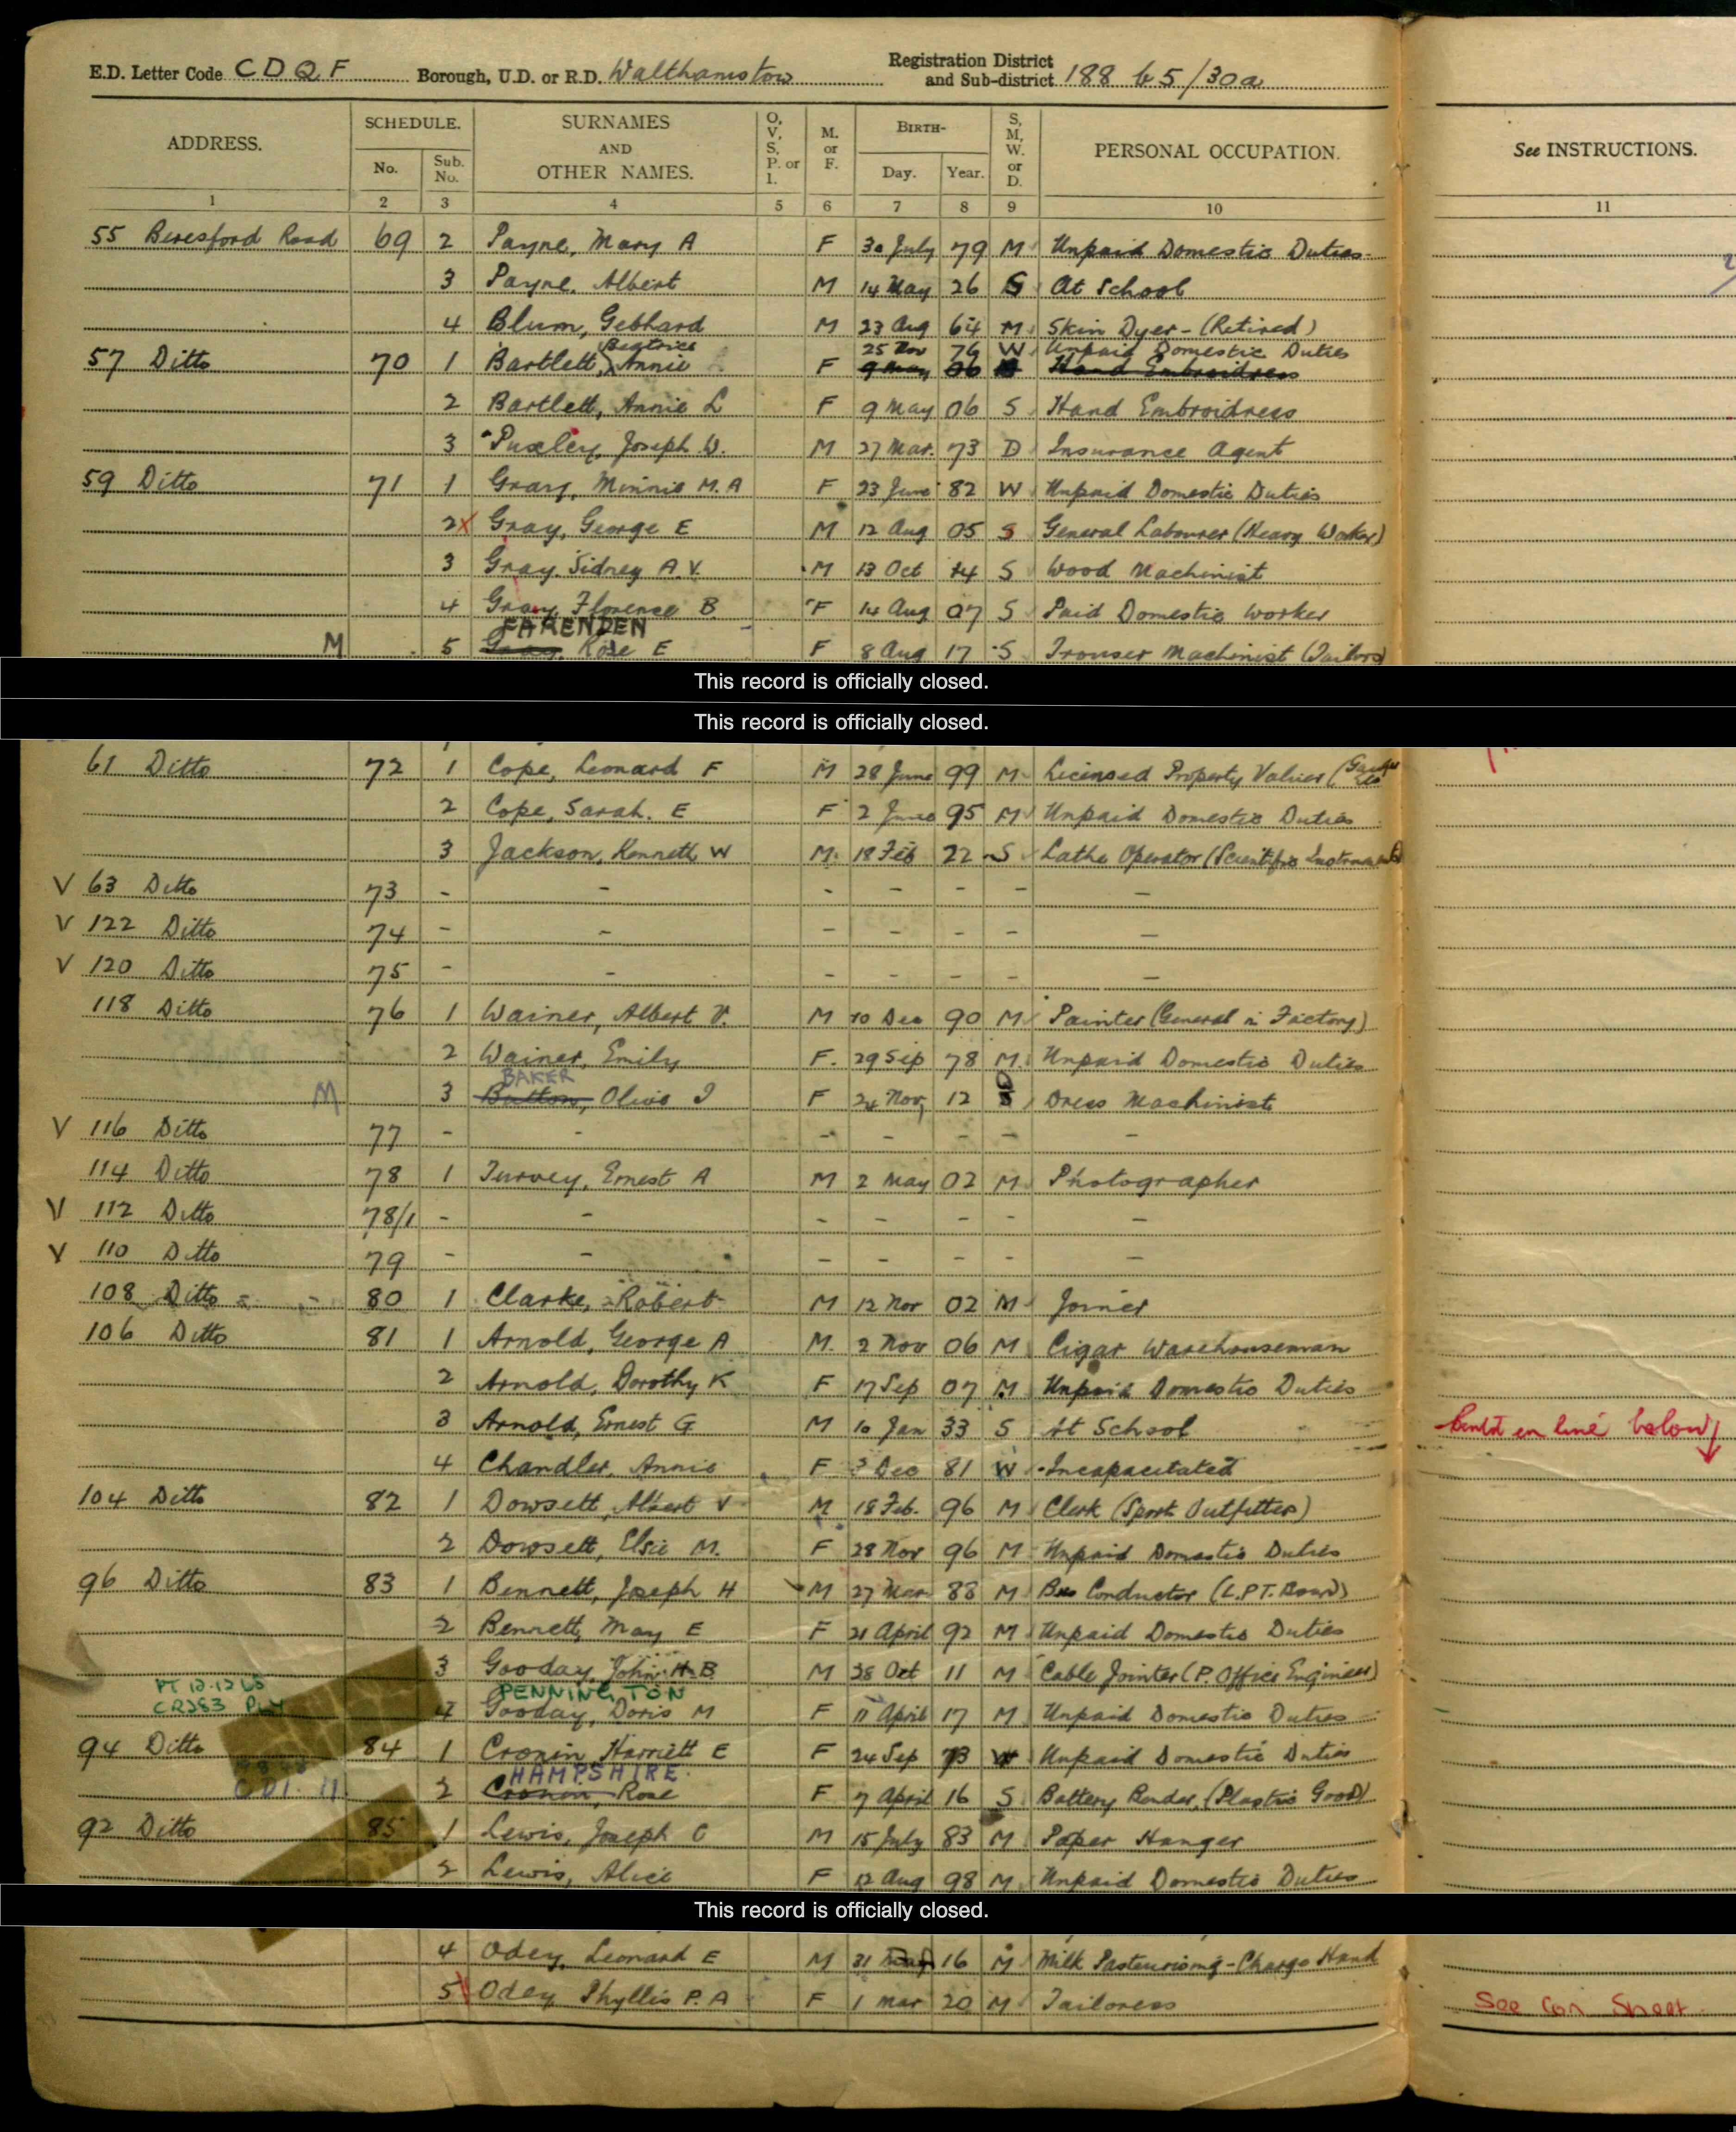 E.D. Letter Code CDQF Borough, U.D. or R.D. Walthamstow Registration District and Sub-district 188 b5/30a
ADDRESS. SCHEDULE. No. Sub. No. SURNAMES AND OTHER NAMES. O, V, S, P. or I. M. or F. BIRTH- Day. Year. S, M, W. or D. PERSONAL OCCUPATION. See INSTRUCTIONS.
1 2 3 4 5 6 7 8 9 10 11
55 Beresford Road 69 2 Payne, Mary A F 30 July 79 M Unpaid Domestic Duties
3 Payne, Albert M 14 May 26 S At School
4 Blum, Gebhard M 23 Aug 64 M Skin Dyer - (Retired)
Beatrice 25 Nov 76 W Unpaid Domestic Duties
57 Ditto 70 1 Bartlett, Annie F 9 May 06 Hand Embroidress
2 Bartlett, Annie L F 9 May 06 S Hand Embroidress
3 Puxley, Joseph W. M 27 Mar. 73 D Insurance Agent
59 Ditto 71 1 Gray, Minnie M. A F 23 June 82 W Unpaid Domestic Duties
2 X Gray, George E M 12 Aug 05 S General Labourer (Heavy Worker)
3 Gray, Sidney A.V. M 13 Oct 14 S Wood Machinist
4 Gray, Florence B F 14 Aug 07 S Paid Domestic Worker
FARENDEN
M 5 Gray, Rose E F 8 Aug 17 S Trouser Machinist (Tailors)
This record is officially closed.
This record is officially closed.
61 Ditto 72 1 Cope, Leonard F M 28 June 99 M Licensed Property Valuer
2 Cope, Sarah. E F 2 June 95 M Unpaid Domestic Duties
3 Jackson, Kenneth W M. 18 Feb 22 S Lathe Operator (Scientific Instruments)
V 63 Ditto 73 - - - - - - -
V 122 Ditto 74 - - - - - - -
V 120 Ditto 75 - - - - - - -
118 Ditto 76 1 Wainer, Albert V. M 10 Dec 90 M Painter (General in Factory)
2 Wainer, Emily F. 29 Sep 78 M. Unpaid Domestic Duties
BAKER
M 3 Button, Olive I F 24 Nov, 12 Dress Machinist
V 116 Ditto 77 - - - - - - -
114 Ditto 78 1 Turvey, Ernest A M 2 May 02 M Photographer
V 112 Ditto 78/1 - - - - - - -
V 110 Ditto 79 - - - - - - -
108 Ditto 80 1 Clarke, Robert M 12 Nov 02 M Joiner
106 Ditto 81 1 Arnold, George A M. 2 Nov 06 M Cigar Warehouseman
2 Arnold, Dorothy K F 17 Sep 07 M Unpaid Domestic Duties
3 Arnold, Ernest G M 10 Jan 33 S At School on line below
4 Chandler, Annie F 3 Dec 81 W Incapacitated
104 Ditto 82 1 Dowsett, Albert V M 18 Feb. 96 M Clerk (Sports Outfitters)
2 Dowsett, Elsie M. F 28 Nov 96 M Unpaid Domestic Duties
96 Ditto 83 1 Bennett, Joseph H M 27 Mar 88 M Bus Conductor (L.P.T. Board)
2 Bennett, May E F 21 April 92 M Unpaid Domestic Duties
3 Gooday, John H. B. M 28 Oct 11 M Cable Jointer (P. Office Engineer)
PENNINGTON
CR283 4 Gooday, Doris M F 11 April 17 M Unpaid Domestic Duties
94 Ditto 84 1 Cronin, Harriett E F 24 Sep 73 W Unpaid Domestic Duties
HAMPSHIRE
CDI. 11 2 Cronin, Rose F 7 April 16 S Battery Bender, (Plastic Good)
92 Ditto 85 1 Lewis, Joseph C M 15 July 83 M Paper Hanger
2 Lewis, Alice F 12 Aug 98 M Unpaid Domestic Duties
This record is officially closed.
4 Odey, Leonard E M 31 May 16 M Milk Pasteurising - Charge Hand
5 Odey Phyllis P. A F 1 Mar 20 M Tailoress See Con Sheet